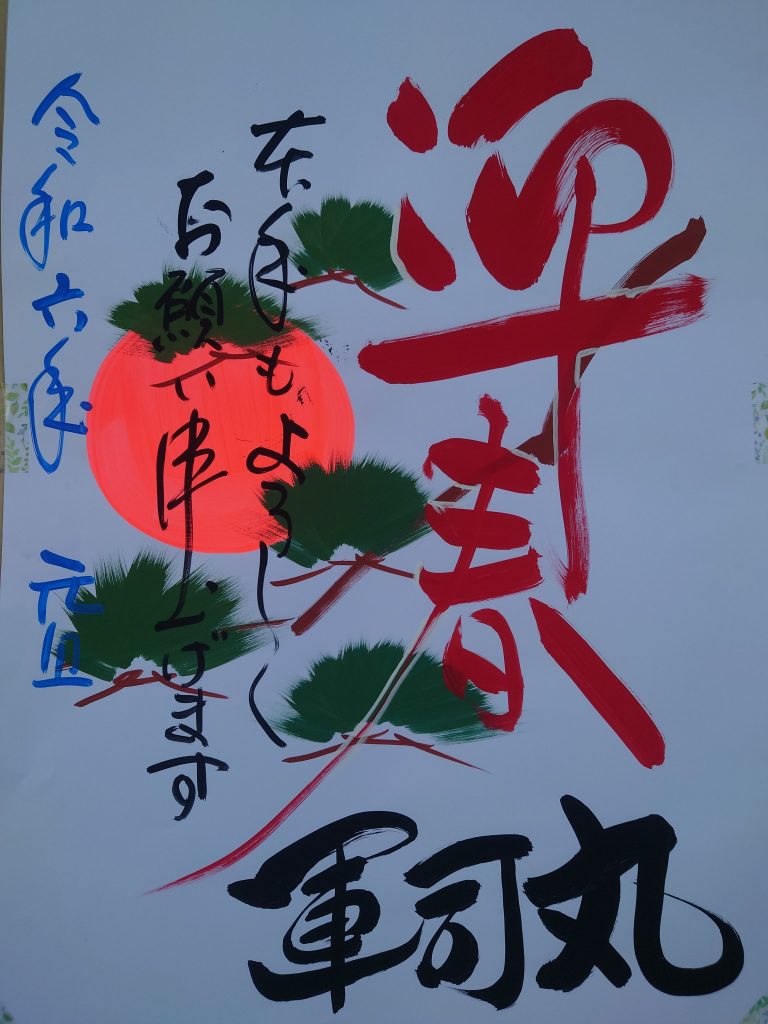 迎春
本年もよろしく
お願い申上げます
令和六年 元旦
軍司丸